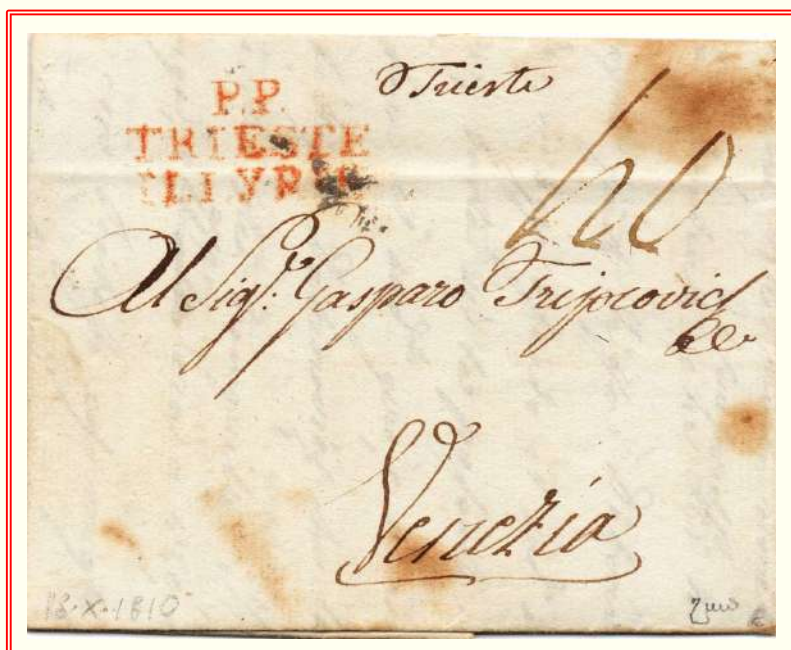 P.P.
TRIESTE
ILLYRIE
Trieste
60
Al Sigr. Gasparo Trijocovich
Venezia
13.X.1810